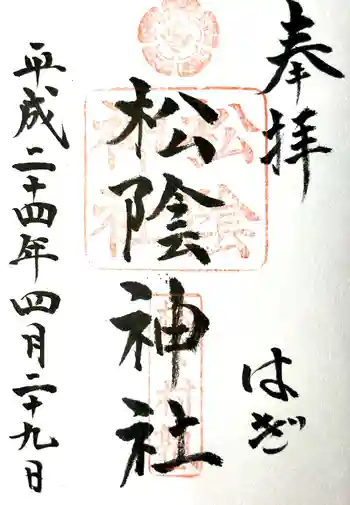 奉拝
はぎ
松陰神社
平成二十四年四月二十九日
松陰神社